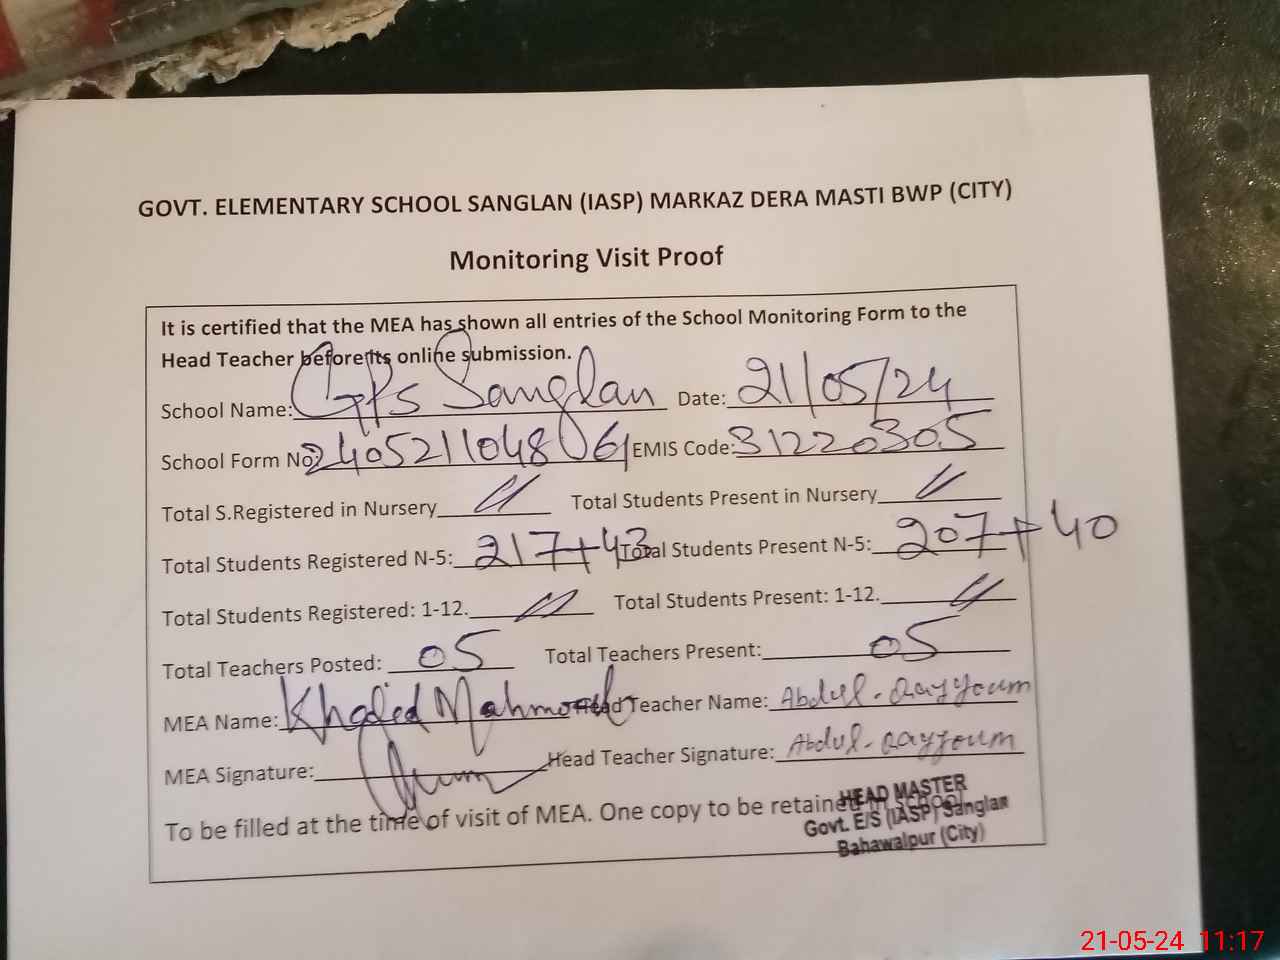 GOVT. ELEMENTARY SCHOOL SANGLAN (IASP) MARKAZ DERA MASTI BWP (CITY)
Monitoring Visit Proof
It is certified that the MEA has shown all entries of the School Monitoring Form to the
Head Teacher before its online submission.
School Name: GPS Sanglan Date: 21/05/24
School Form No: 2405211048061 EMIS Code: 31220305
Total S.Registered in Nursery Total Students Present in Nursery
Total Students Registered N-5: 217+43 Total Students Present N-5: 207+40
Total Students Registered: 1-12. Total Students Present: 1-12.
Total Teachers Posted: 05 Total Teachers Present: 05
MEA Name: Khalid Mahmood Head Teacher Name: Abdul-Qayyoum
MEA Signature: Head Teacher Signature: Abdul-Qayyoum
To be filled at the time of visit of MEA. One copy to be retained in school
HEAD MASTER
Govt. E/S (IASP) Sanglan
Bahawalpur (City)
21-05-24 11:17